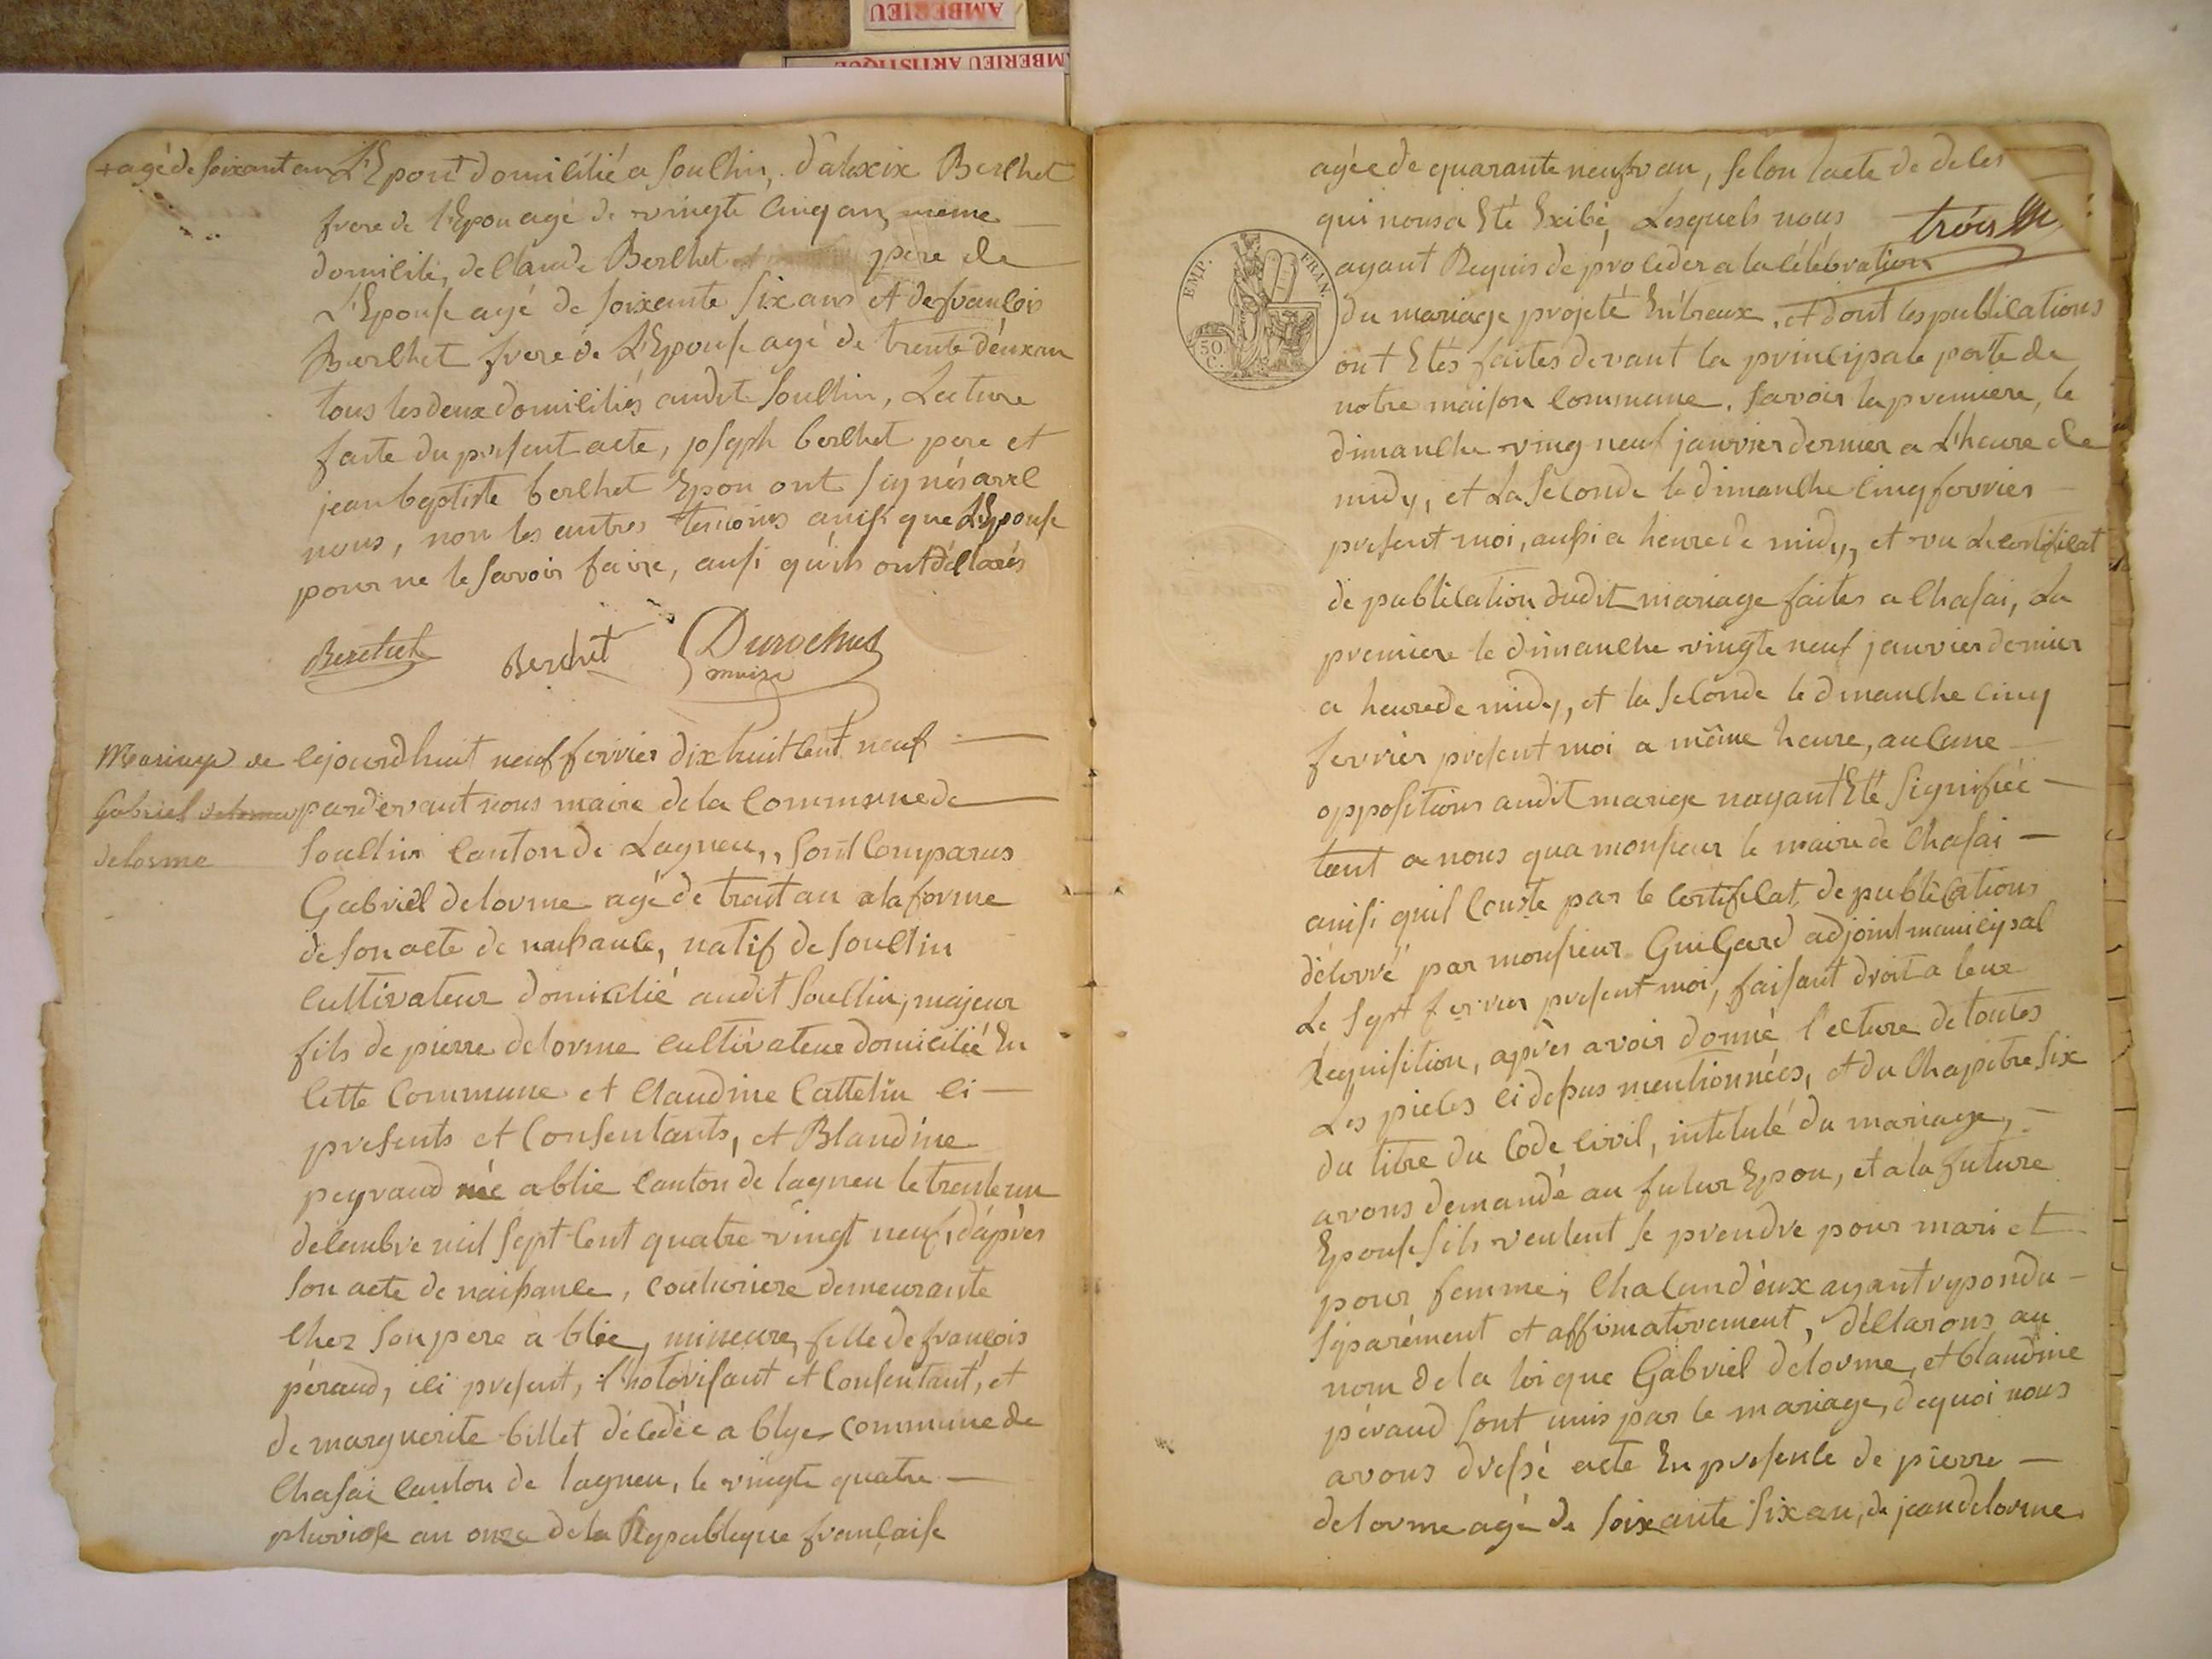 AMBERIEU
AMBERIEU ARTISTIQUE
+ agé de soixant an L'Epout domilitié a Souclin, d'alexix Berlhet
frere de l'Epou agé de vingte cinq an, meme
domicilié, de Claude Berlhet père de
L'Epouse agé de soixante six ans et de françois
Berlhet frere de L'Epouse agé de trente deux an
tous les deux domiciliés audit Souclin, Lecture
faite du present acte, joseph berlhet pere et
jean baptiste berlhet Epou ont signés avec
nous, non les autres temoins ainsi que L'Epouse
pour ne le savoir faire, ansi qu'ils ont déclarés
Berchet Durochat
maire
Mariage de
Gabriel delorme
delorme
cejourdhuit neuf fevrier dix huit cent neuf
pardevant nous maire de la commune de
Souclin canton de Lagneu, sont comparus
Gabriel delorme agé de trait an a la forme
de son acte de naissance, natif de Souclin
cultivateur domicilié audit Souclin, majeur
fils de pierre delorme cultivateur domicilié En
cette commune et Claudine Cattelin ci
presents et consentants, et Blandine
peyraud née a blie canton de lagneu le trente un
decembre mil sept cent quatre vingt neuf, d'après
son acte de naissance, couturiere demeurante
chez son pere à blie, mineure, fille de françois
péraud, ici present, l'hotorisant et consentant, et
de marguerite billet décédée a blye commune de
Chasai canton de lagneu, le vingte quatre
pluviose an onze de la Republique française
agée de quarante neuf an, selon lacte de deces
trois
qui nous a Eté Exibé, Lesquels nous
ayant Requis de proceder a la célébration
EMP. FRAN.
50.
C.
du mariage projeté Entreux, et dont les publications
ont Etés faites devant la principale porte de
notre maison commune. Savoir la premiere, le
dimanche ving neuf janvier dernier a L'heure de
midy, et La Seconde le dimanche cinq fevrier
present moi, aussi a heure de midy, et vu Le certificat
de publication dudit mariage faites a Chasai, La
premiere le dimanche vingte neuf janvier dernier
a heure de midy, et la seconde le dimanche cinq
fevrier present moi a même heure, aucune
oppositions audit mariage nayant Eté signifiée
tant a nous qua monsieur le maire de Chasai
ainsi quil conste par le certificat de publications
délivré par monsieur Guigard adjoint municipal
Le sept fevrier present moi, faisant droit a leur
Requisition, après avoir donné lecture de toutes
Les pieces ci dessus mentionnées, et du Chapitre Six
du titre du Code civil, intitulé du mariage,
avons demandé au futur Epou, et a la future
Epouse sils veulent se prendre pour mari et
pour femme, Chacun d'eux ayant repondu
séparément et affirmativement, déclarons au
nom de la loi que Gabriel delorme, et blandine
péraud sont unis par le mariage, de quoi nous
avons dressé acte En presence de pierre
delorme agé de soixante six an, de jean delorme